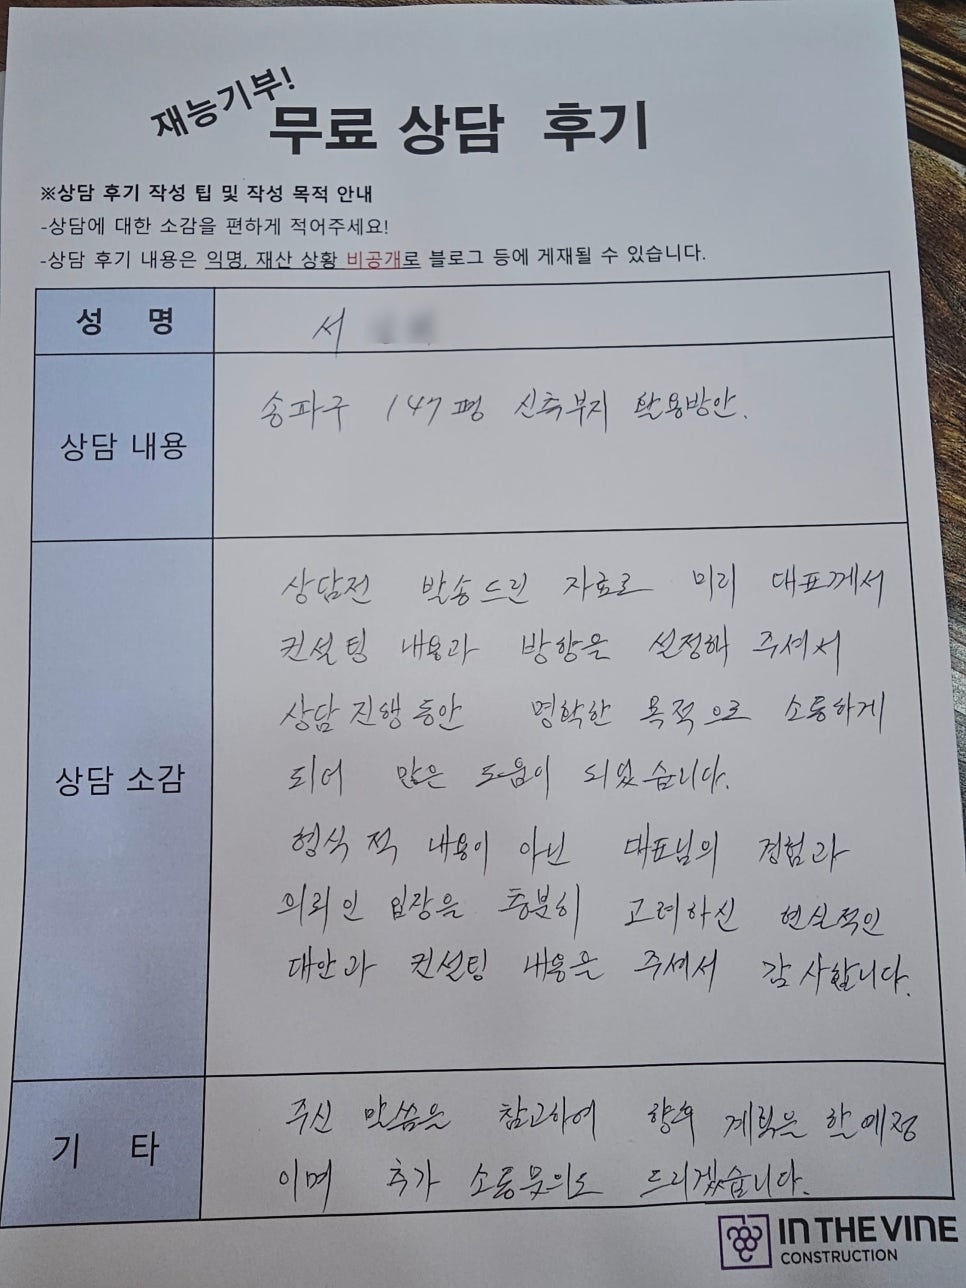 재능기부!
무료 상담 후기
※상담 후기 작성 팁 및 작성 목적 안내
-상담에 대한 소감을 편하게 적어주세요!
-상담 후기 내용은 익명, 재산 상황 비공개로 블로그 등에 게재될 수 있습니다.
성 명
서
상담 내용
송파구 147평 신축부지 활용방안.
상담 소감
상담전 발송드린 자료로 미리 대표께서
컨설팅 내용과 방향을 설정해 주셔서
상담 진행 동안 명확한 목적으로 소통하게
되어 많은 도움이 되었습니다.
형식적 내용이 아닌 대표님의 경험과
의뢰인 입장을 충분히 고려하신 현실적인
대안과 컨설팅 내용을 주셔서 감사합니다.
기 타
주신 말씀을 참고하여 향후 계획을 할 예정
이며 추가 소통 문의도 드리겠습니다.
IN THE VINE
CONSTRUCTION